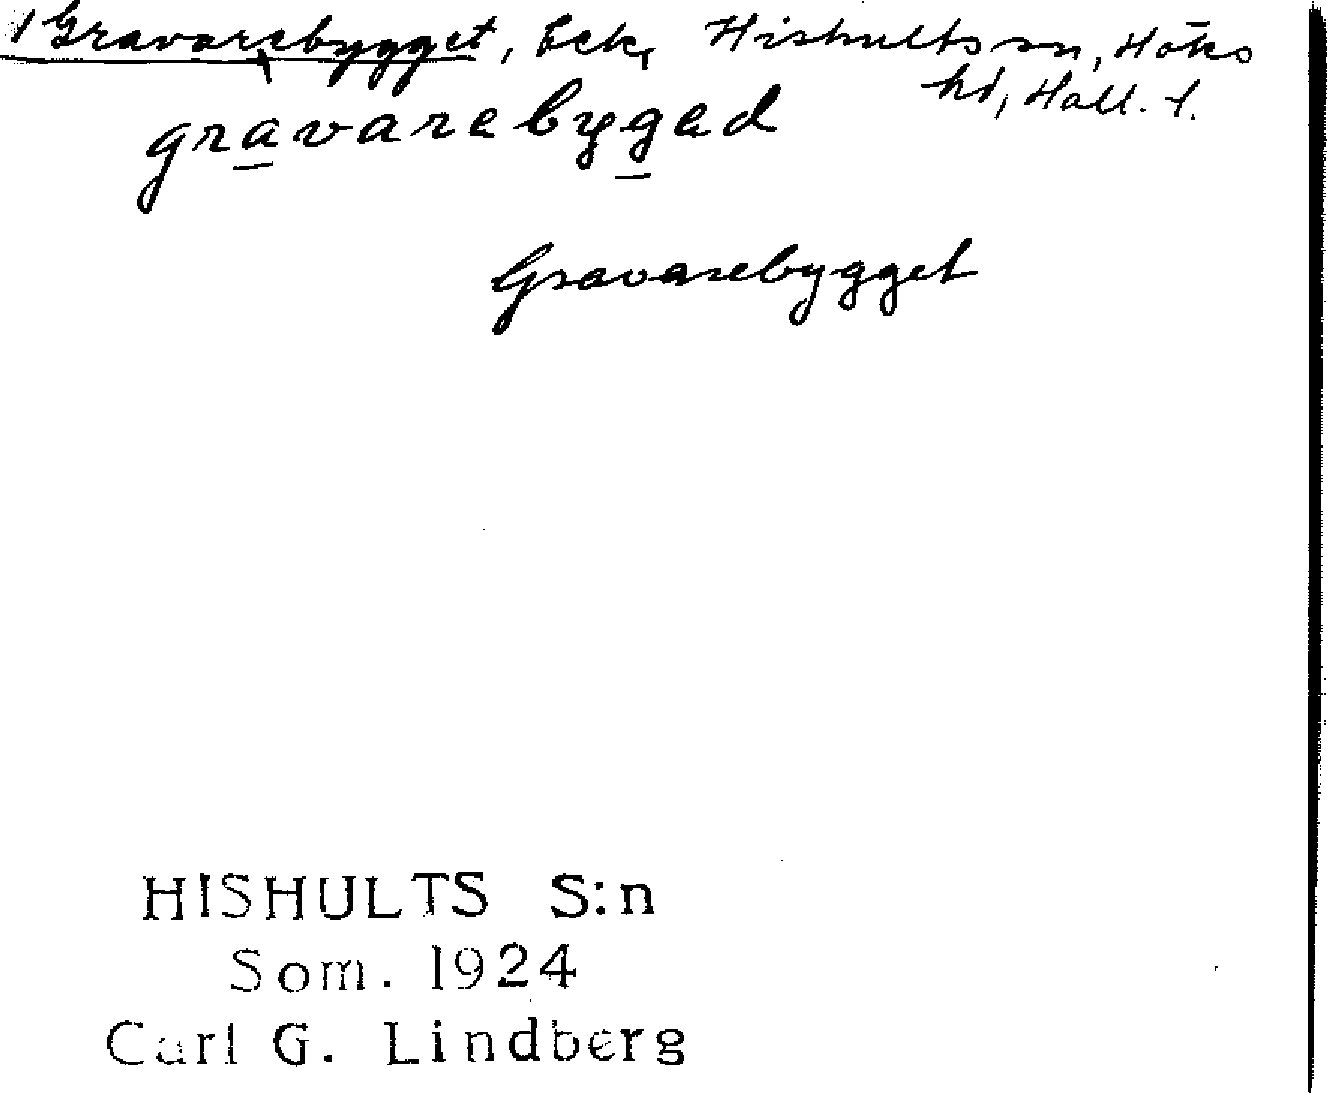 Gravarebygget, Eck, Hishults sn, Höks
hd, Hall. l.
gravarebygæd
Gravarebygget
HISHULTS S:n
Som. 1924
Carl G. Lindberg